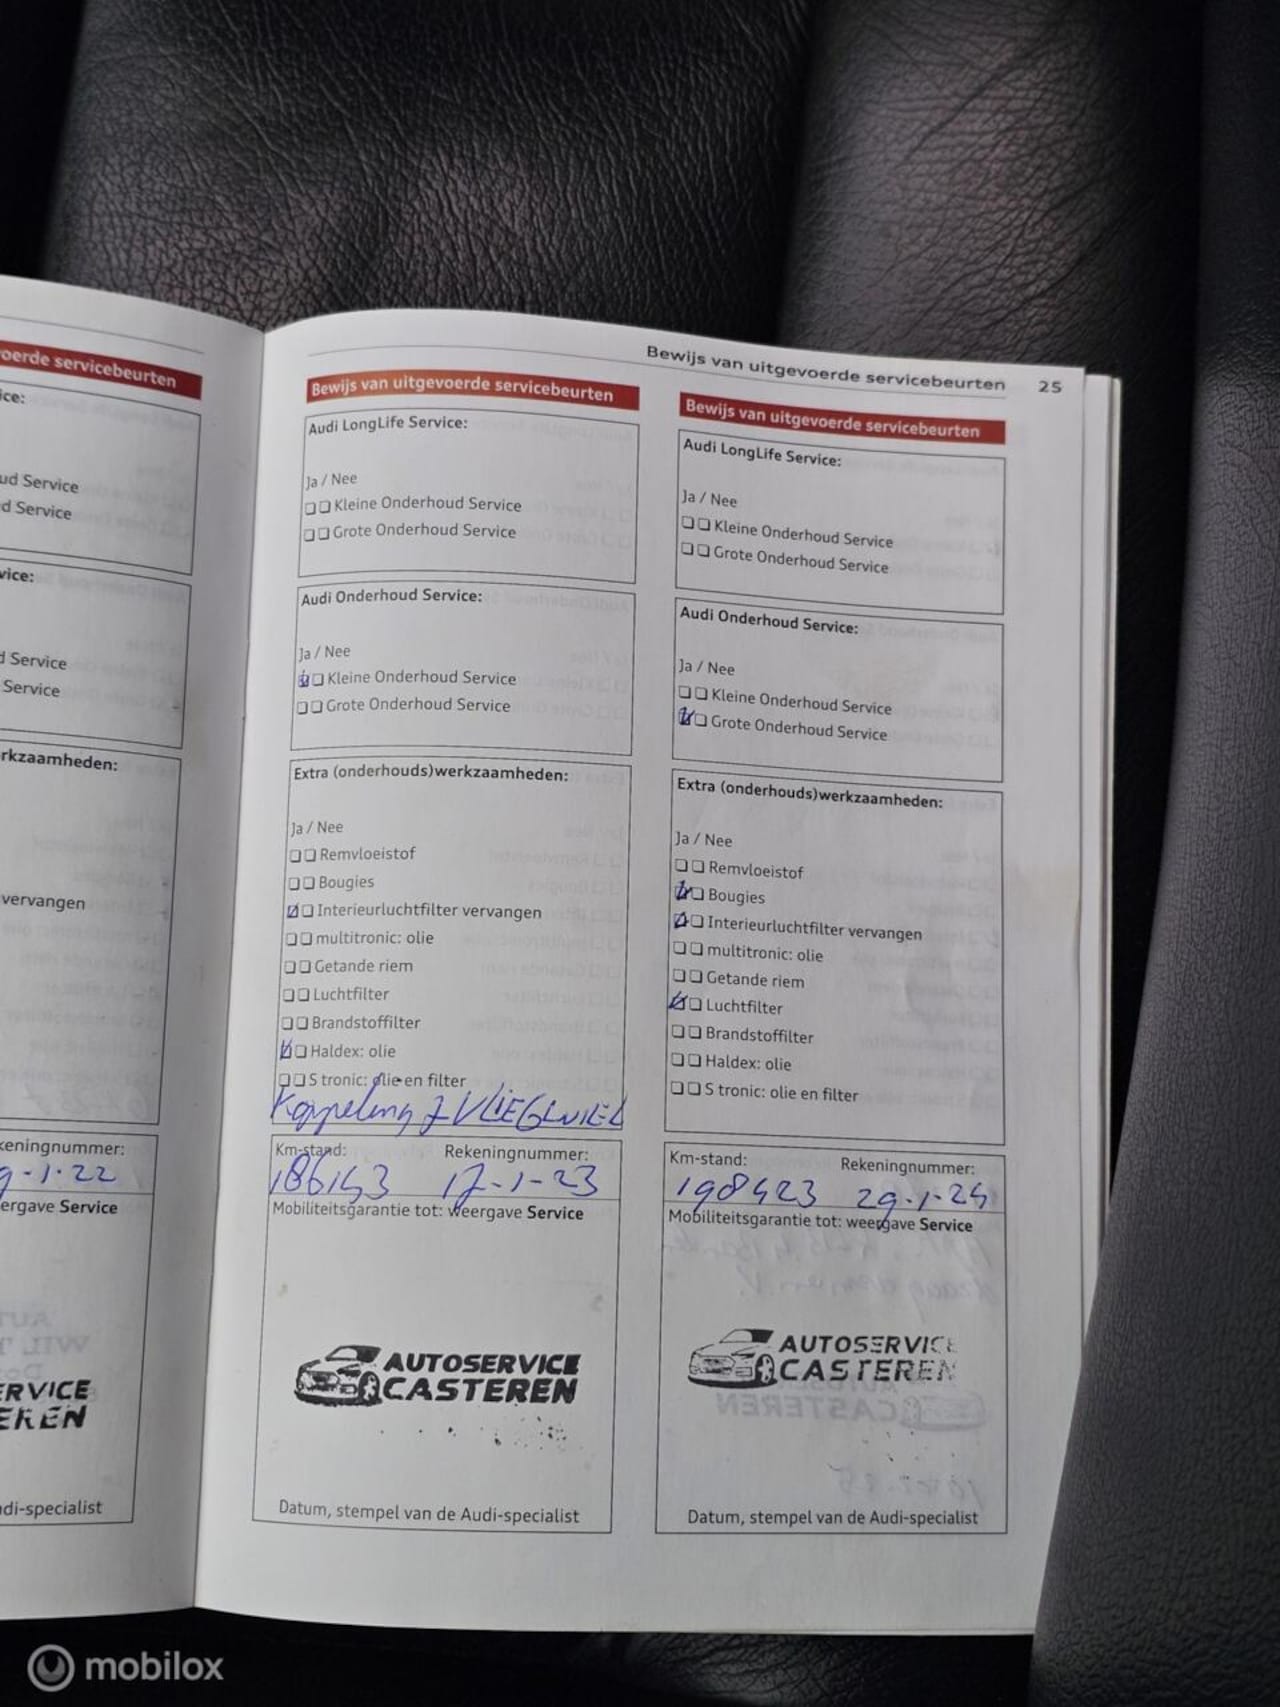 Bewijs van uitgevoerde servicebeurten 25
oerde servicebeurten
ice:
ud Service
d Service
vice:
d Service
Service
rkzaamheden:
vervangen
keningnummer:
9-1-22
ergave Service
ERVICE
EREN
di-specialist
Bewijs van uitgevoerde servicebeurten
Audi LongLife Service:
Ja / Nee
Kleine Onderhoud Service
Grote Onderhoud Service
Audi Onderhoud Service:
Ja / Nee
Kleine Onderhoud Service
Grote Onderhoud Service
Extra (onderhouds)werkzaamheden:
Ja / Nee
Remvloeistof
Bougies
Interieurluchtfilter vervangen
multitronic: olie
Getande riem
Luchtfilter
Brandstoffilter
Haldex: olie
S tronic: olie en filter
Koppeling & VLIEGWIEL
Km-stand: Rekeningnummer:
186153 17-1-23
Mobiliteitsgarantie tot: weergave Service
AUTOSERVICE
CASTEREN
Datum, stempel van de Audi-specialist
Bewijs van uitgevoerde servicebeurten
Audi LongLife Service:
Ja / Nee
Kleine Onderhoud Service
Grote Onderhoud Service
Audi Onderhoud Service:
Ja / Nee
Kleine Onderhoud Service
Grote Onderhoud Service
Extra (onderhouds)werkzaamheden:
Ja / Nee
Remvloeistof
Bougies
Interieurluchtfilter vervangen
multitronic: olie
Getande riem
Luchtfilter
Brandstoffilter
Haldex: olie
S tronic: olie en filter
Km-stand: Rekeningnummer:
198423 29-1-24
Mobiliteitsgarantie tot: weergave Service
AUTOSERVICE
CASTEREN
Datum, stempel van de Audi-specialist
mobilox